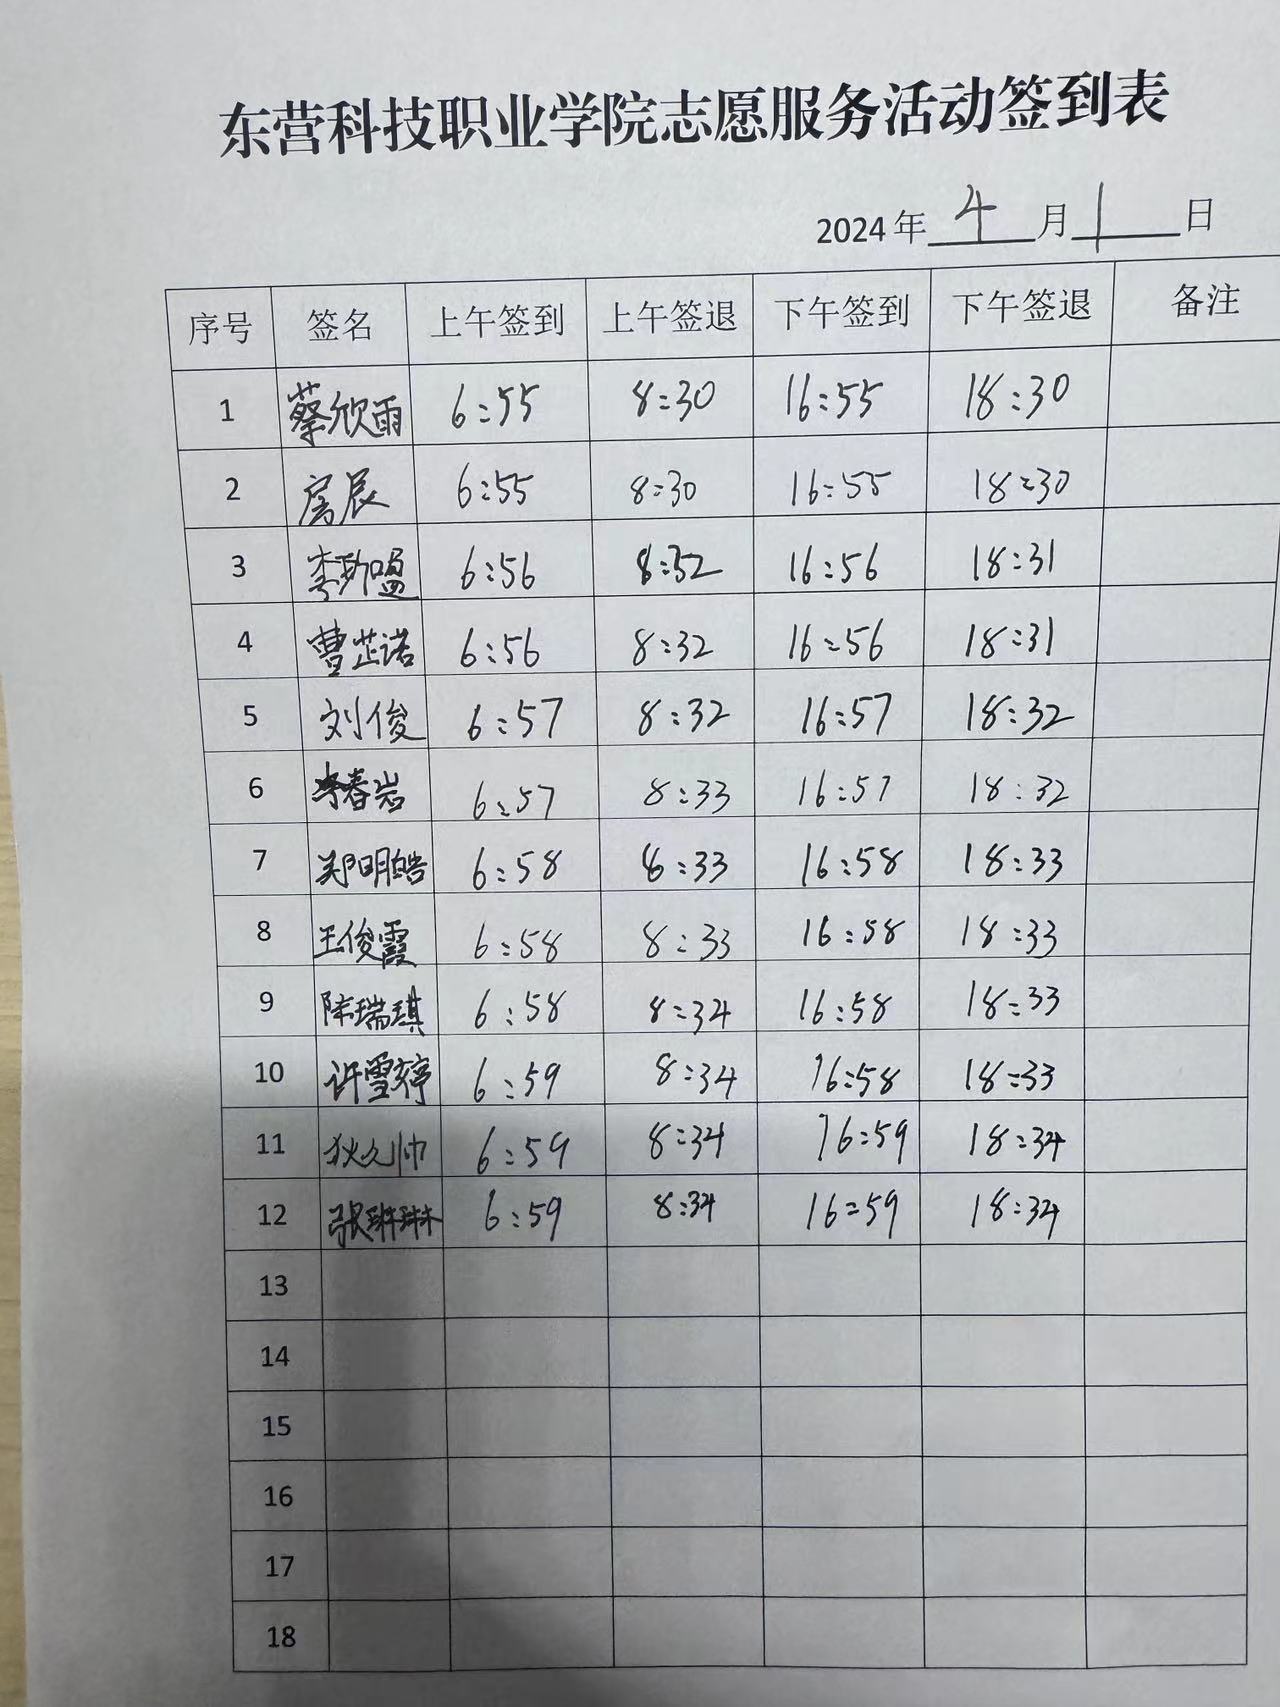 东营科技职业学院志愿服务活动签到表
2024年 4 月 1 日
序号 签名 上午签到 上午签退 下午签到 下午签退 备注
1 蔡欣雨 6:55 8:30 16:55 18:30
2 房辰 6:55 8:30 16:55 18:30
3 6:56 8:32 16:56 18:31
4 曹芷诺 6:56 8:32 16:56 18:31
5 刘俊 6:57 8:32 16:57 18:32
6 春岩 6:57 8:33 16:57 18:32
7 郑明皓 6:58 8:33 16:58 18:33
8 王俊霞 6:58 8:33 16:58 18:33
9 陈瑞琪 6:58 8:34 16:58 18:33
10 许雪婷 6:59 8:34 16:58 18:33
11 狄久帅 6:59 8:34 16:59 18:34
12 张琳琳 6:59 8:34 16:59 18:34
13
14
15
16
17
18